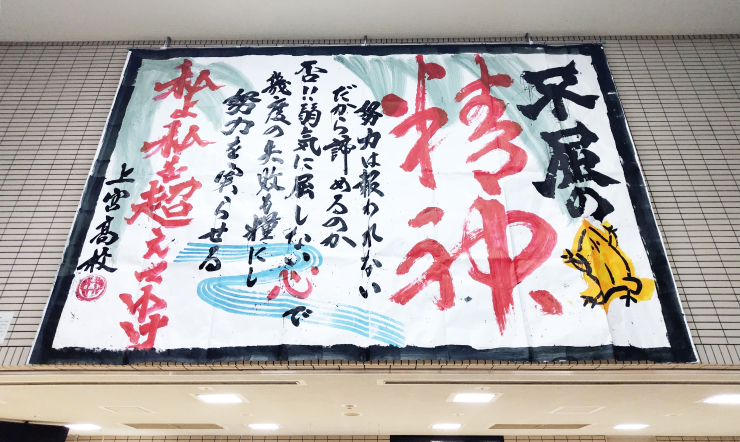 不屈の
精神
努力は報われない
だから諦めるのか
否!!弱気に屈しない心で
幾度の失敗も糧にし
努力を実らせる
私よ私を超えてゆけ
上宮高校